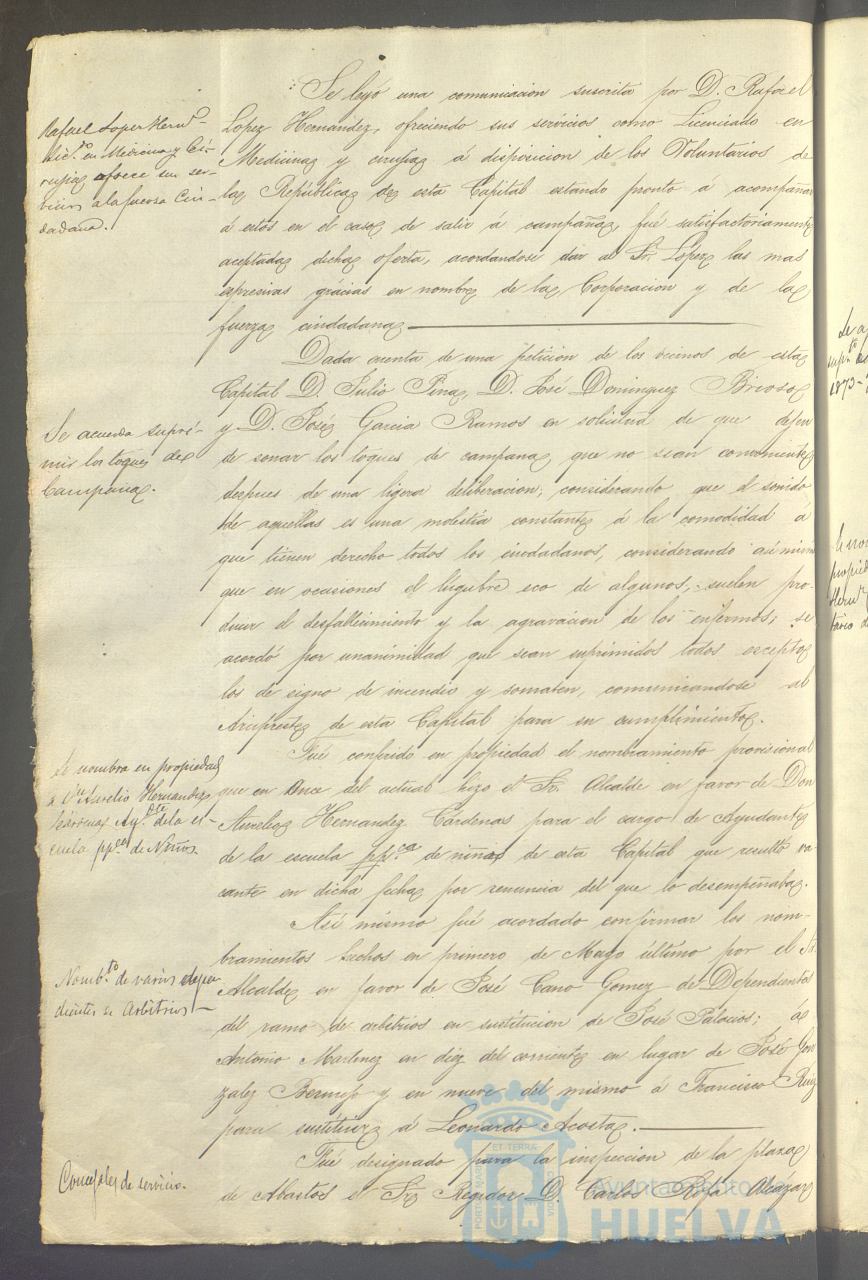 Se leyó una comunicacion suscrita por D. Rafael
Lopez Hernandez, ofreciendo sus servicios como Licenciado en
Medicina y cirujia á disposicion de los Voluntarios de
la República de esta Capital estando pronto á acompañar
á estos en el caso de salir á campaña, fué satisfactoriamente
aceptada dicha oferta, acordandose dar al Sr. Lopez las mas
espresivas grácias en nombre de la Corporacion y de la
fuerza ciudadana
Rafael Lopez Hern.
Lic.do en Medicina y Ci-
rujia ofrece sus ser-
vicios a la fuerza Ciu-
dadana.
Dada cuenta de una peticion de los vecinos de esta
Capital D. Julio Pina, D. José Dominguez Brioso
y D. José Garcia Ramos en solicitud de que dejen
de sonar los toques de campana, que no sean convenientes
despues de una ligera deliberacion; considerando que el sonido
de aquellas es una molestia constante á la comodidad a
que tienen derecho todos los ciudadanos, considerando asi mismo
que en ocasiones el lúgubre eco de algunos, suelen pro-
ducir el desfallecimiento y la agravacion de los enfermos; se
acordó por unanimidad que sean suprimidos todos excepto
los de signo de incendio y somaten, comunicandose al
Arcipreste de esta Capital para su cumplimiento.
Se acuerda supri-
mir los toques de
Campana.
Fué conferido en propiedad el nombramiento provisional
que en once del actual hizo el Sr. Alcalde en favor de Don
Aurelio Hernandez Cárdenas para el cargo de Ayudante
de la escuela pp.ca de niños de esta Capital que resultó va-
cante en dicha fecha por renuncia del que lo desempeñaba.
Se nombra en propiedad
a Dn Aurelio Hernandez
Cárdenas Ay.te de la es-
cuela pp.ca de Niños
Asi mismo fué acordado confirmar los nom-
bramientos hechos en primero de Mayo último por el Sr.
Alcalde en favor de José Cano Gomez de Dependiente
del ramo de arbitrios en sustitucion de José Palacios; á
Antonio Martinez en diez del corriente en lugar de José Gon
zalez Bermejo y en nueve del mismo á Francisco Ruiz
para sustituir á Leonardo Acosta.
Nomb.to de varios depen
dientes de Arbitrios
Fué designado para la inspeccion de la plaza
de Abastos el Sr. Regidor D. Carlos Rofa Alcázar
Concejales de servicio.
Ayuntamiento de
HUELVA
PORTUS MARIS ET TERRA CUSTODIA
sup.to de
1873
propied
Hern